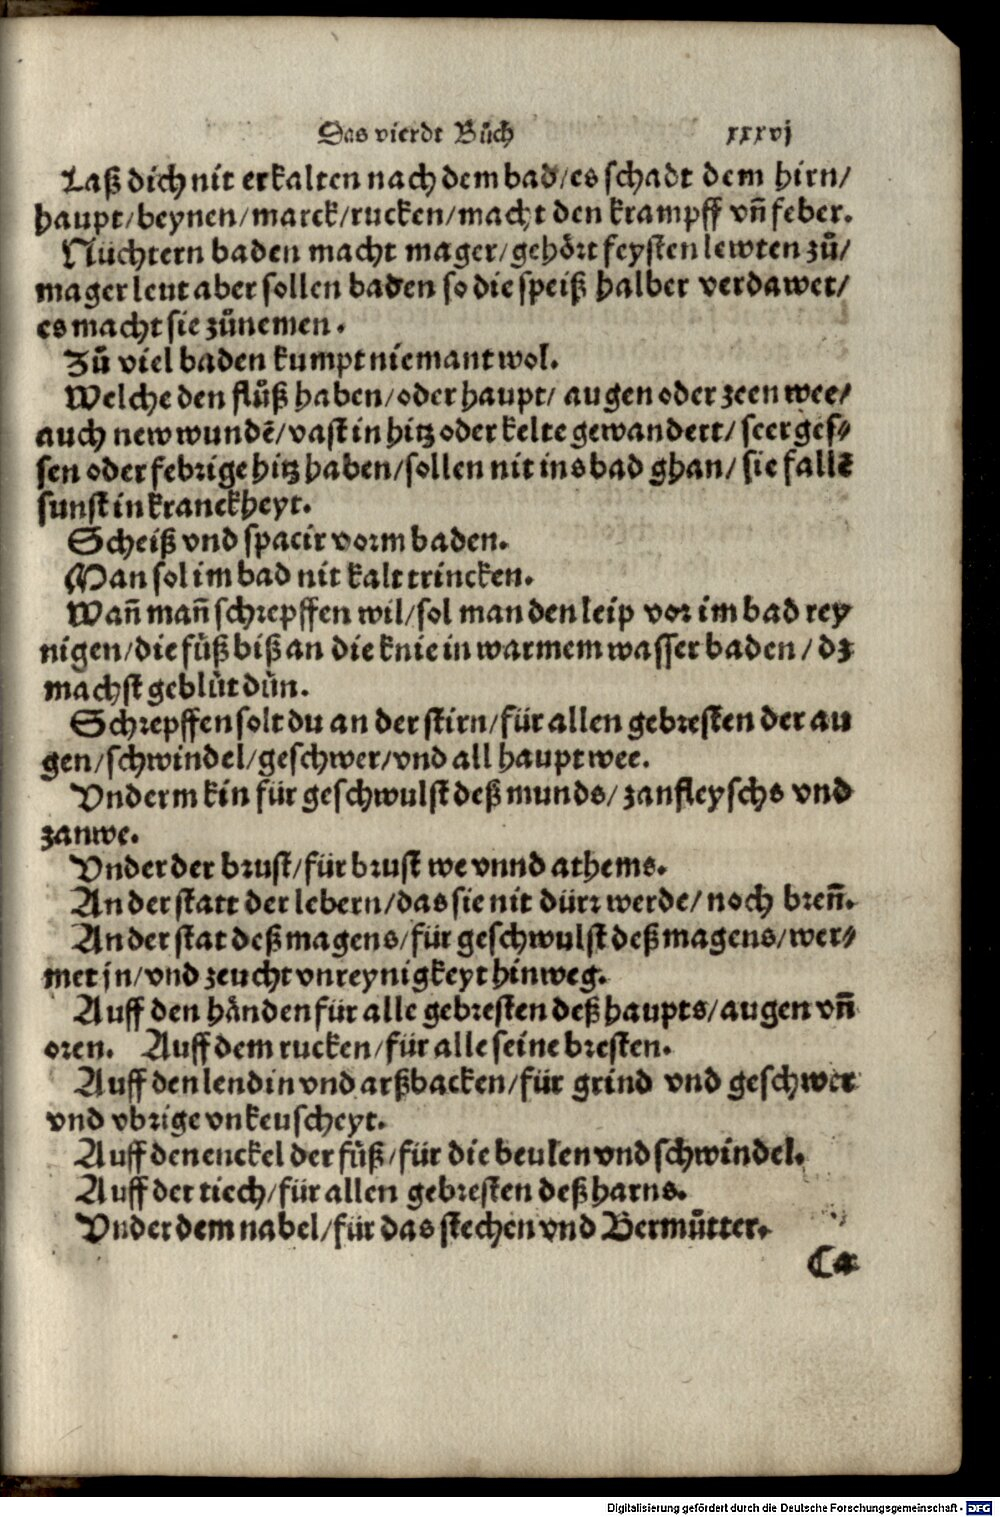 Das vierdt Bůch xxxvj
Laß dich nit erkalten nach dem bad/es schadt dem hirn/
haupt/beynen/marck/rucken/macht den krampff vñ feber.
Nüchtern baden macht mager/gehört feysten lewten zů/
mager leut aber sollen baden so die speiß halber verdawet/
es macht sie zůnemen.
Zů viel baden kumpt niemant wol.
Welche den flůß haben/oder haupt/ augen oder zeen wee/
auch new wundẽ/vast in hitz oder kelte gewandert/ seer ges⸗
sen oder febrige hitz haben/sollen nit ins bad ghan/ sie fallẽ
sunst in kranckheyt.
Scheiß vnd spacir vorm baden.
Man sol im bad nit kalt trincken.
Wañ mañ schrepffen wil/sol man den leip vor im bad rey
nigen/die fůß biß an die knie in warmem wasser baden/ dz
machst geblůt dün.
Schrepffen solt du an der stirn/für allen gebresten der au
gen/schwindel/geschwer/vnd all hauptwee.
Vnderm kin für geschwulst deß munds/ zanfleyschs vnd
zanwe.
Vnder der brust/für brust we vnnd athems.
An der statt der lebern/das sie nit dürr werde/noch breñ.
An der stat deß magens/für geschwulst deß magens/wer⸗
met jn/vnd zeucht vnreynigkeyt hinweg.
Auff den händen für alle gebresten deß haupts/augen vñ
oren. Auff dem rucken/für alle seine bresten.
Auff den lendin vnd arßbacken/für grind vnd geschwer
vnd vbrige vnkeuscheyt.
Auff den enckel der fůß/für die beulen vnd schwindel.
Auff der tiech/für allen gebresten deß harns.
Vnder dem nabel/für das stechen vnd Bermůtter.
Ca
Digitalisierung gefördert durch die Deutsche Forschungsgemeinschaft - DFG